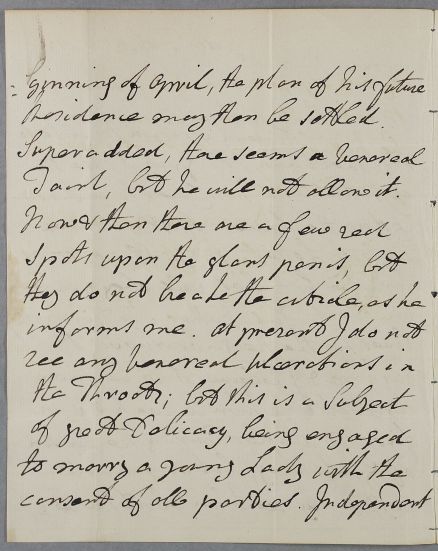 =ginning of April, the plan of his future
Residence may then be settled.
Superadded, there seems a venereal
Taint, but he will not allow it.
Now & then there are a few red
spots upon the glans penis, but
they do not break the cuticle, as he
informs me. At present I do not
see any venereal ulcerations in
the Throat; but this is a Subject
of great Delicacy, being engaged
to marry a young Lady with the
consent of all parties. Independent